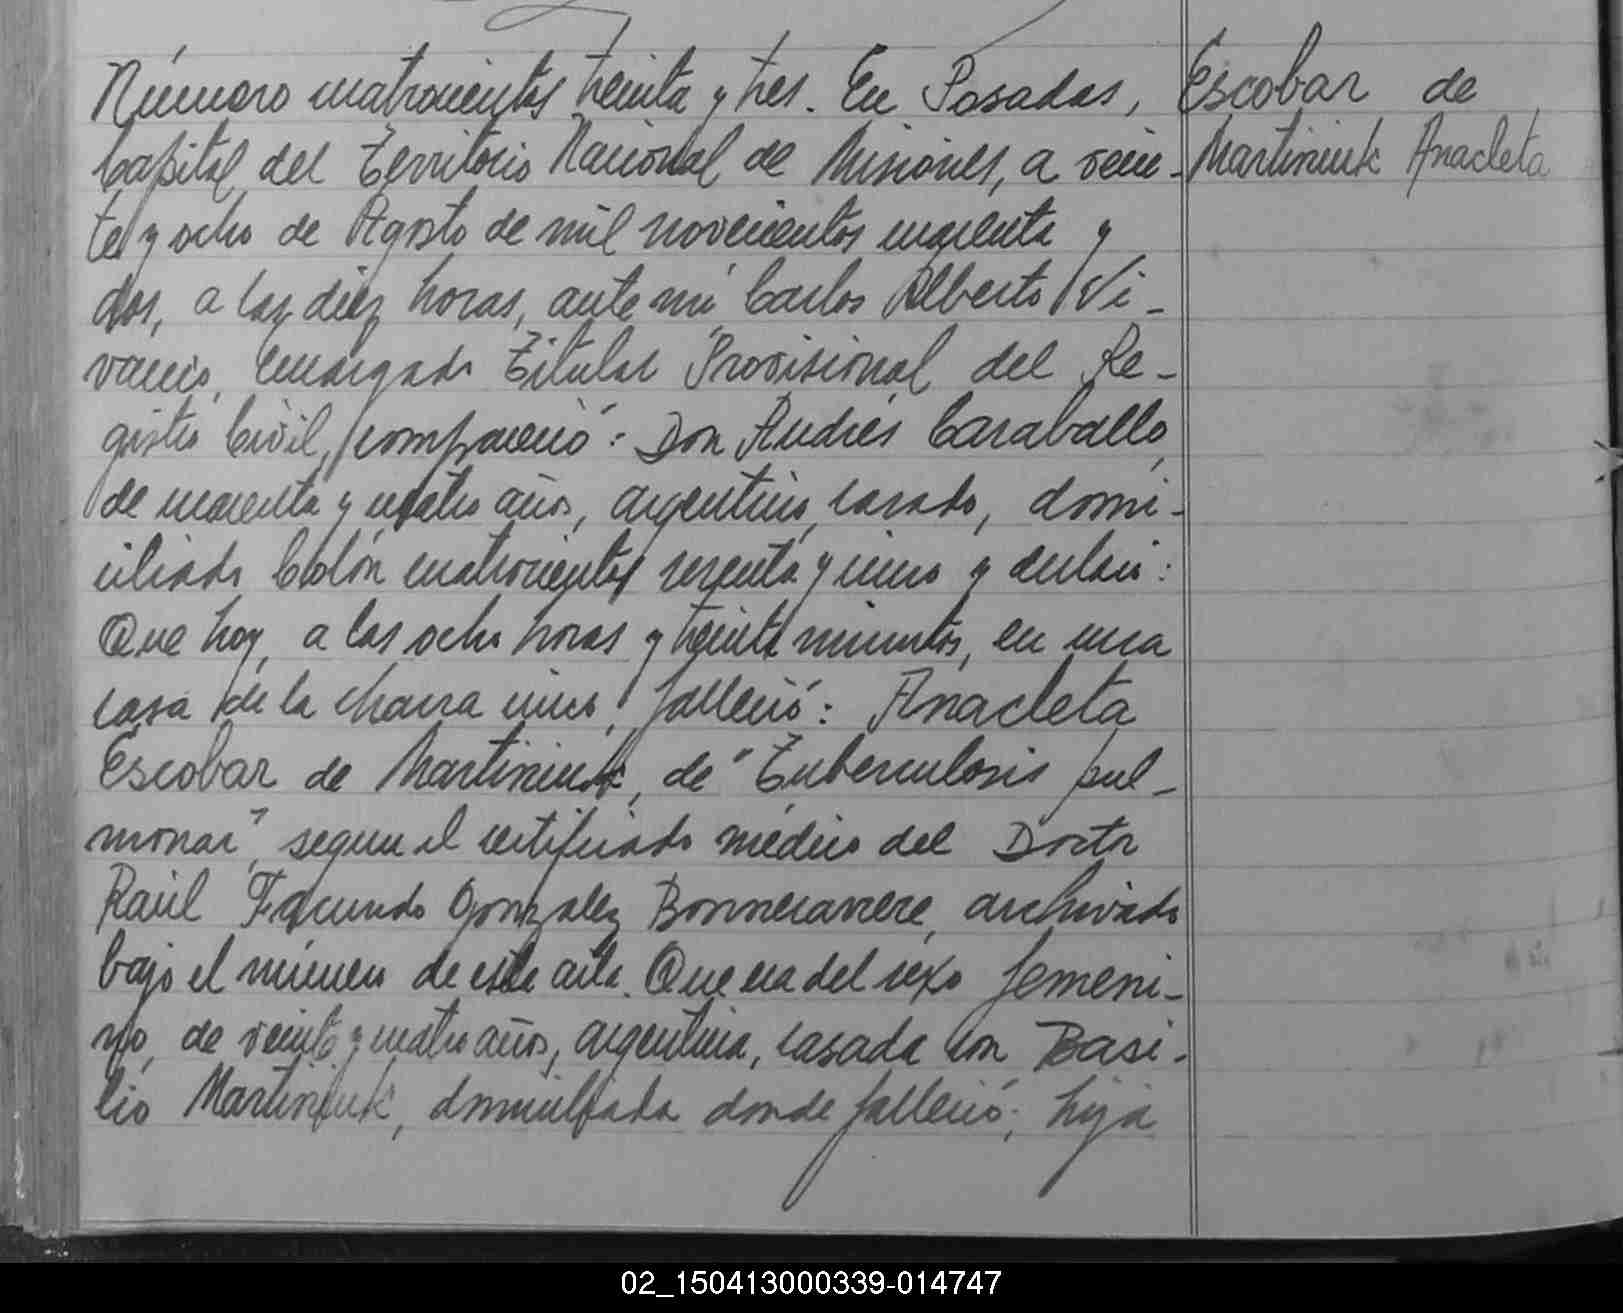 Número cuatrocientos treinta y tres. En Posadas,
Capital del Territorio Nacional de Misiones, a vein-
te y ocho de Agosto de mil novecientos cuarenta y
dos, a las diez horas, ante mí Carlos Alberto Vi-
vanco, Encargado Titular Provisional del Re-
gistro Civil, compareció: Don Andrés Caraballo,
de cuarenta y cuatro años, argentino, casado, domi-
ciliado Colón cuatrocientos sesenta y uno y declaró:
Que hoy, a las ocho horas y treinta minutos, en una
casa de la chacra uno, falleció: Anacleta
Escobar de Martiniuk, de "Tuberculosis pul-
monar", segun el certificado médico del Doctor
Raúl Facundo Gonzalez Bonnecarrere, archivado
bajo el número de este acta. Que era del sexo femeni-
no, de veinte y cuatro años, argentina, casada con Basi-
lio Martiniuk, domiciliada donde falleció; hija
Escobar de
Martiniuk Anacleta
02_150413000339-014747